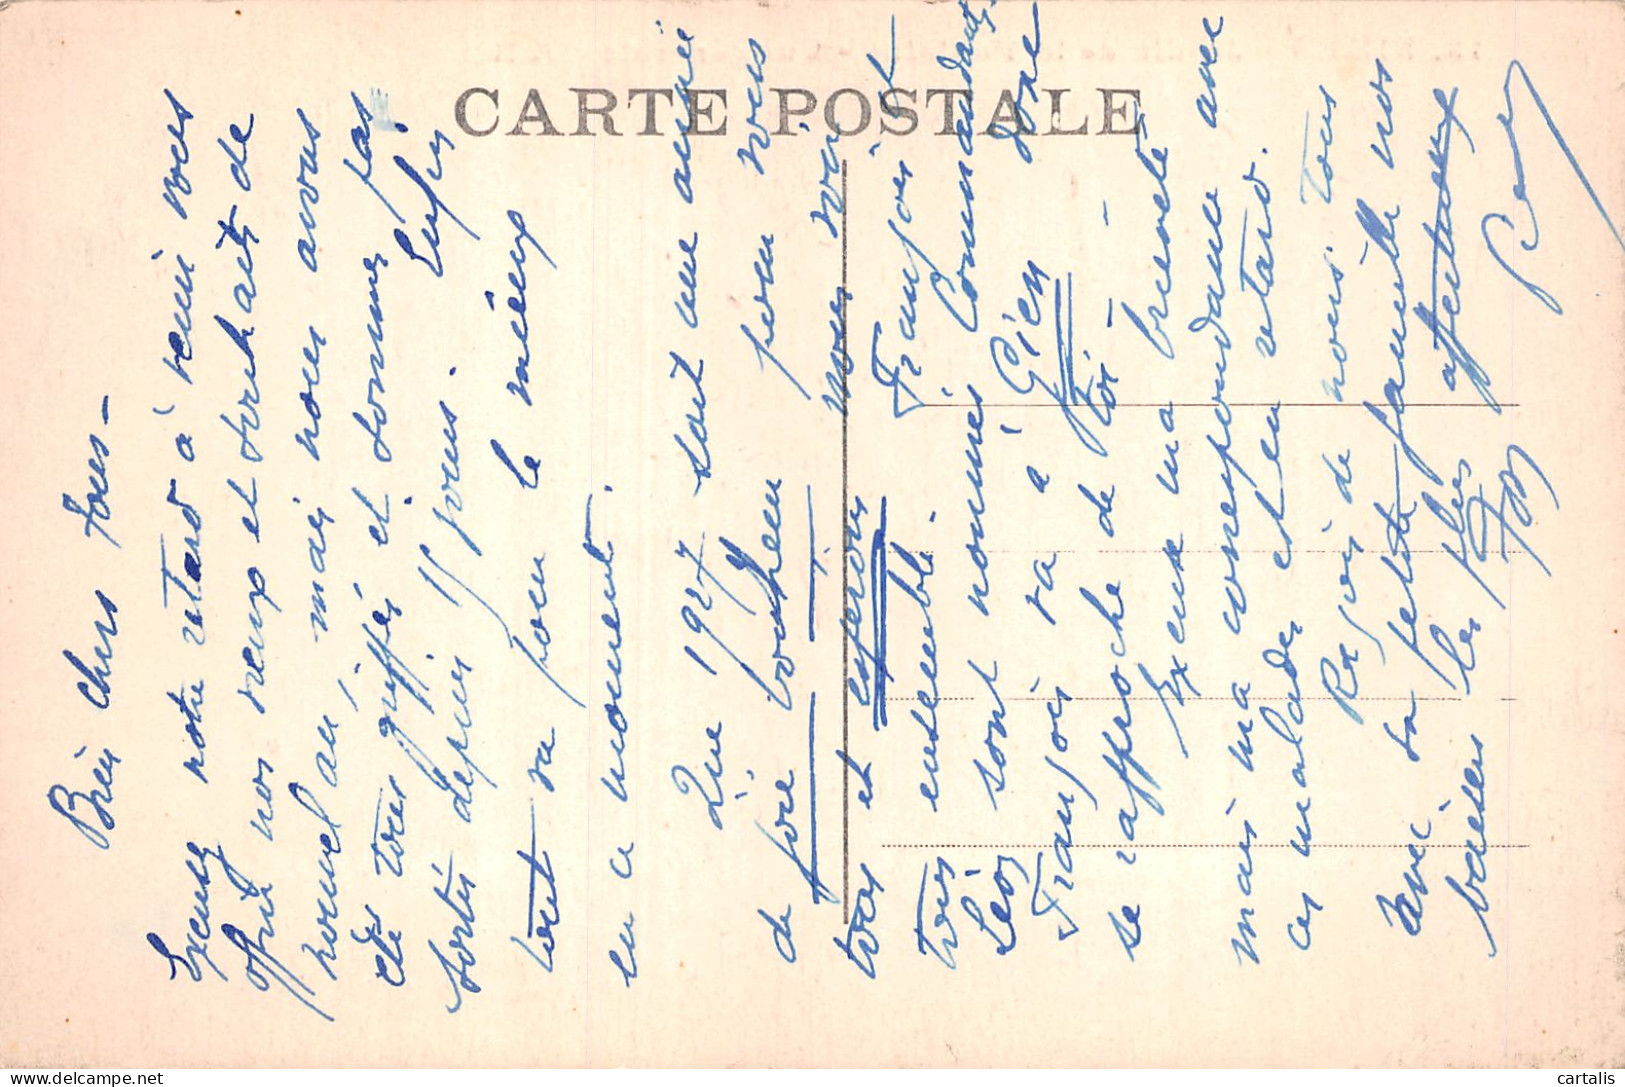 CARTE POSTALE
Bien chers tous -
Excusez notre retard à venir vous
offrir nos vœux et souhaits de
nouvel an, mais nous avons
été tous grippés et sommes pas
sortis depuis 15 jours. Enfin
tout va pour le mieux
en ce moment.
Que 1927 soit une année
de joie bonheur pour vous
tous et espérons nous voir
tous ensemble. François et
Léon sont nommés Commandants
François va à Gien donc
se rapproche de toi -
Excuse ma brièveté
mais ma correspondance avec
ces malades est en retard.
Reçois de nous tous
avec ta petite famille nos
baisers les plus affectueux
cartalis